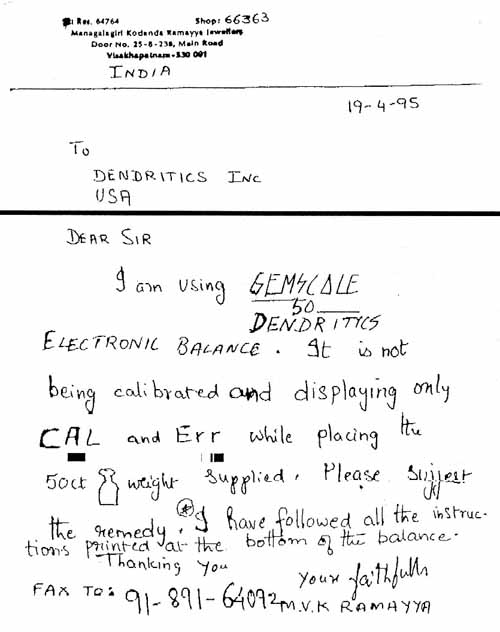 Res. 64764 Shop: 66363
Managalagiri Kodanda Ramayya Jewellers
Door No. 25-8-238, Main Road
Visakhapatnam-530 001
INDIA
19-4-95
To
DENDRITICS INC
USA
DEAR SIR
I am using GEMSCALE
50
DENDRITICS
ELECTRONIC BALANCE. It is not
being calibrated and displaying only
CAL and Err while placing the
50ct weight supplied. Please sujjest
the remedy. I have followed all the instruc-
tions printed at the bottom of the balance.
Thanking you
Yours faithfully
FAX TO: 91-891-64092 M.V.K RAMAYYA